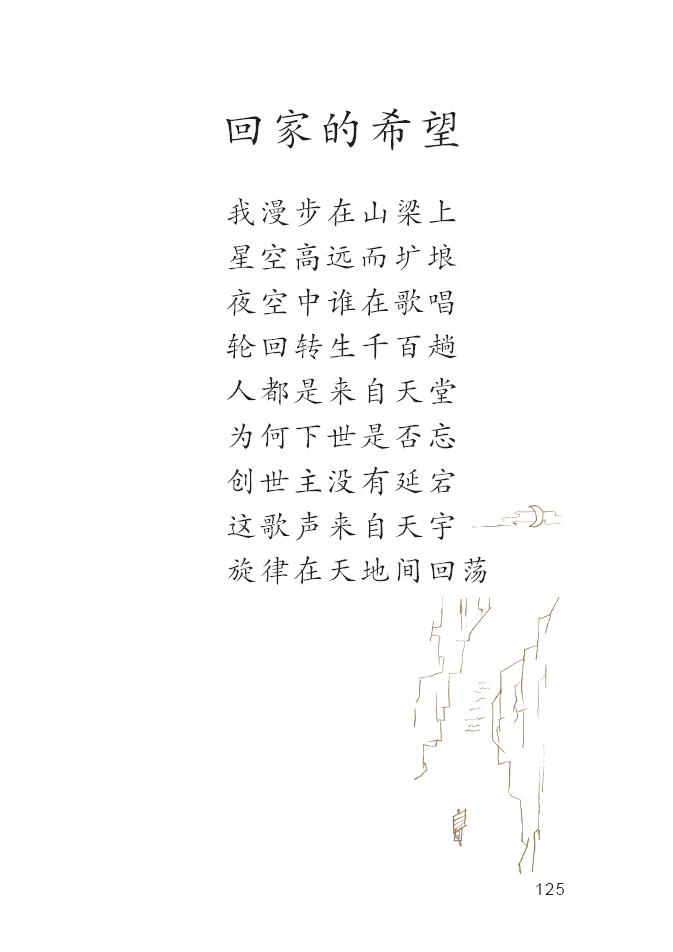 回家的希望
我漫步在山梁上
星空高远而圹埌
夜空中谁在歌唱
轮回转生千百趟
人都是来自天堂
为何下世是否忘
创世主没有延宕
这歌声来自天宇
旋律在天地间回荡
125